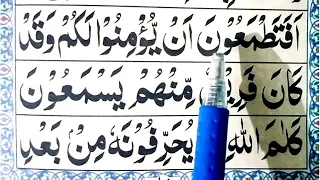 اَفَتَطْمَعُوْنَ اَنْ يُّؤْمِنُوْا لَكُمْ وَقَدْ
كَانَ فَرِيْقٌ مِّنْهُمْ يَسْمَعُوْنَ
كَلٰمَ اللّٰهِ يُحَرِّفُوْنَهٗ مِنْۢ بَعْدِ